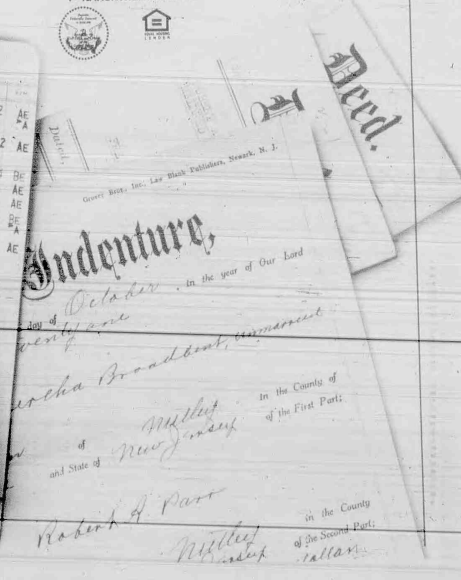 EQUAL HOUSING
LENDER
Deed.
Dated,
AE
A
AE
BE
AE
AE
BE
A
AE
Grover Bros., Inc., Law Blank Publishers, Newark, N. J.
Indenture,
day of October, in the year of Our Lord
twenty one
Bertha Broadbent, unmarried
of Nutley in the County of
and State of New Jersey of the First Part;
Robert A Parr
Nutley in the County
of the Second Part;